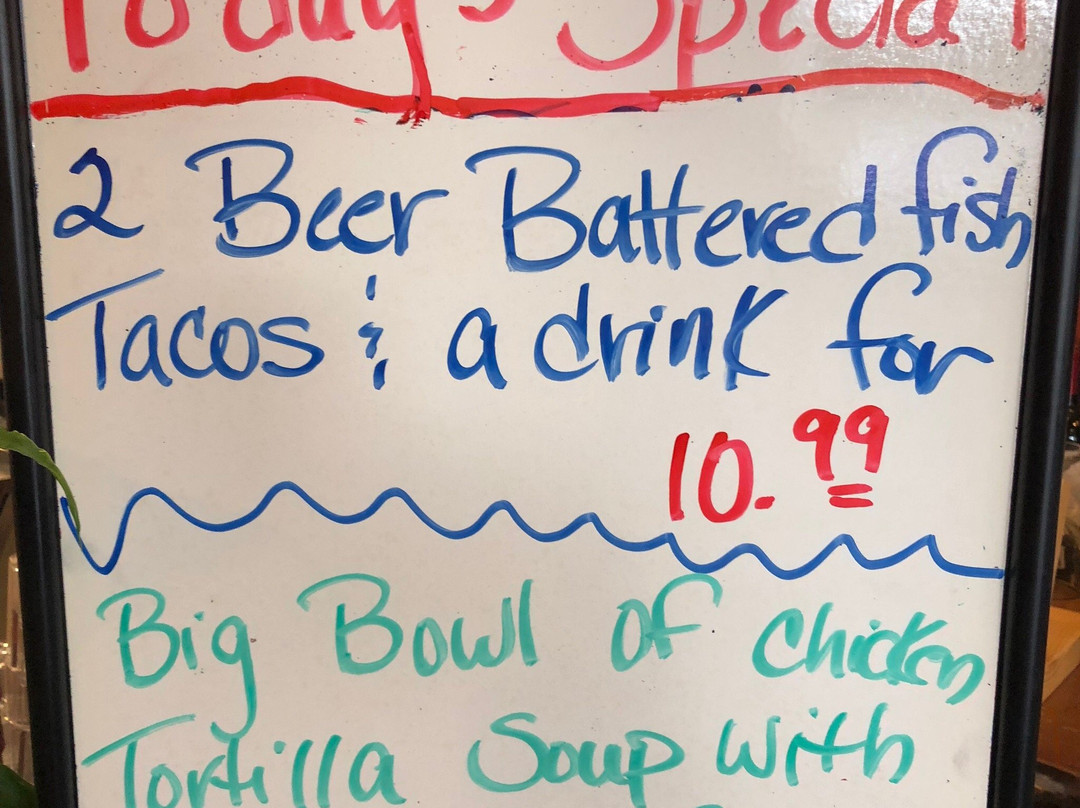 Today's Special
2 Beer Battered fish
Tacos & a drink for
10.99
Big Bowl of Chicken
Tortilla Soup with